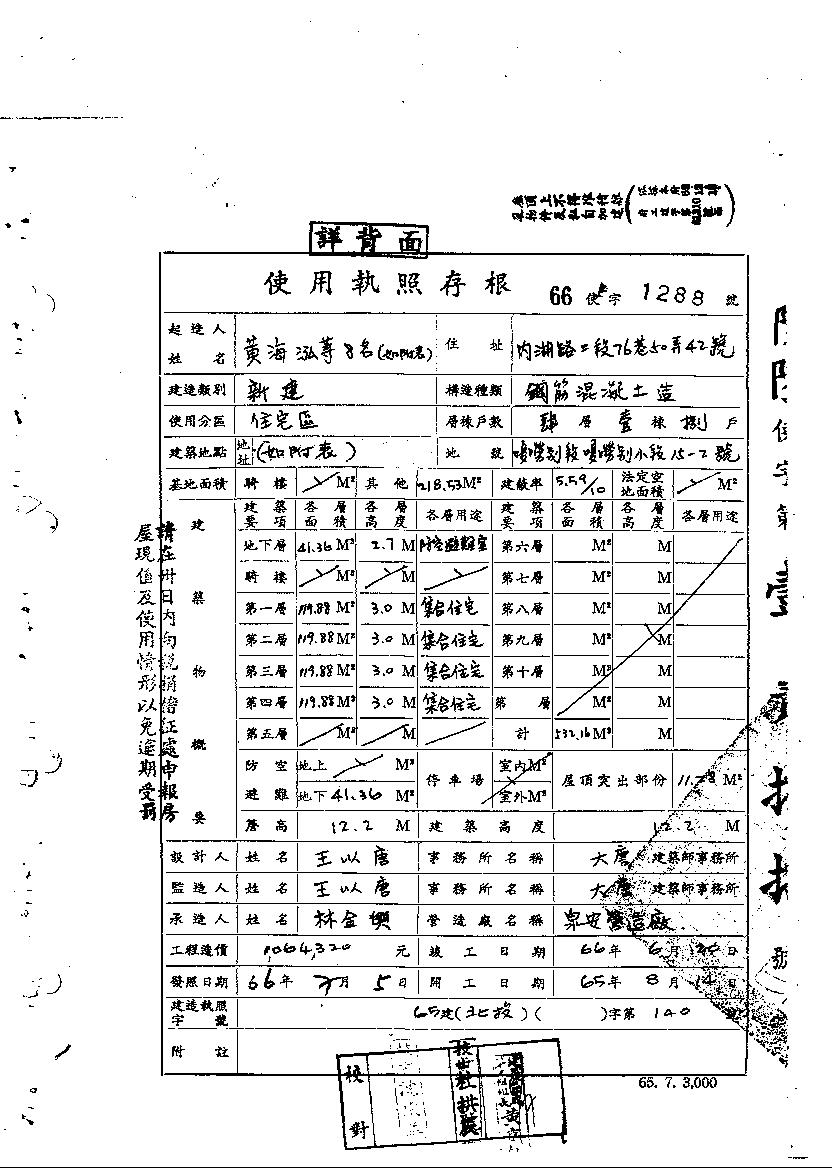 詳背面
使用執照存根
66 使字 1288 號
起造人姓名 黃海泓等8名(如附表) 住址 內湖路二段76巷50弄42號
建造類別 新建 構造種類 鋼筋混凝土造
使用分區 住宅區 層棟戶數 肆層壹棟捌戶
建築地點 地址(如附表) 地號 嗄嘮別段嗄嘮別小段15-2號
基地面積 騎樓 M² 其他 218.53M² 建蔽率 5.59/10 法定空地面積 M²
建築物概要
建築要項 各層面積 各層高度 各層用途 建築要項 各層面積 各層高度 各層用途
地下層 41.36M² 2.7M 防空避難室 第六層 M² M
騎樓 M² M 第七層 M² M
第一層 119.88M² 3.0M 集合住宅 第八層 M² M
第二層 119.88M² 3.0M 集合住宅 第九層 M² M
第三層 119.88M² 3.0M 集合住宅 第十層 M² M
第四層 119.88M² 3.0M 集合住宅 第 層 M² M
第五層 M² M 計 532.16M² M
防空避難 地上 M² 停車場 室內M² 屋頂突出部份 M²
地下41.36M² 室外M²
簷高 12.2M 建築高度 12.2M
設計人 姓名 王以唐 事務所名稱 大唐建築師事務所
監造人 姓名 王以唐 事務所名稱 大唐建築師事務所
承造人 姓名 林金 營造廠名稱 泉安營造廠
工程造價 1,064,320元 竣工日期 66年6月 日
發照日期 66年7月5日 開工日期 65年8月14日
建造執照字號 65建(北投)( )字第140號
附註
65. 7. 3,000
校對
請在卅日內向稅捐稽征處申報房
屋現值及使用情形以免逾期受罰